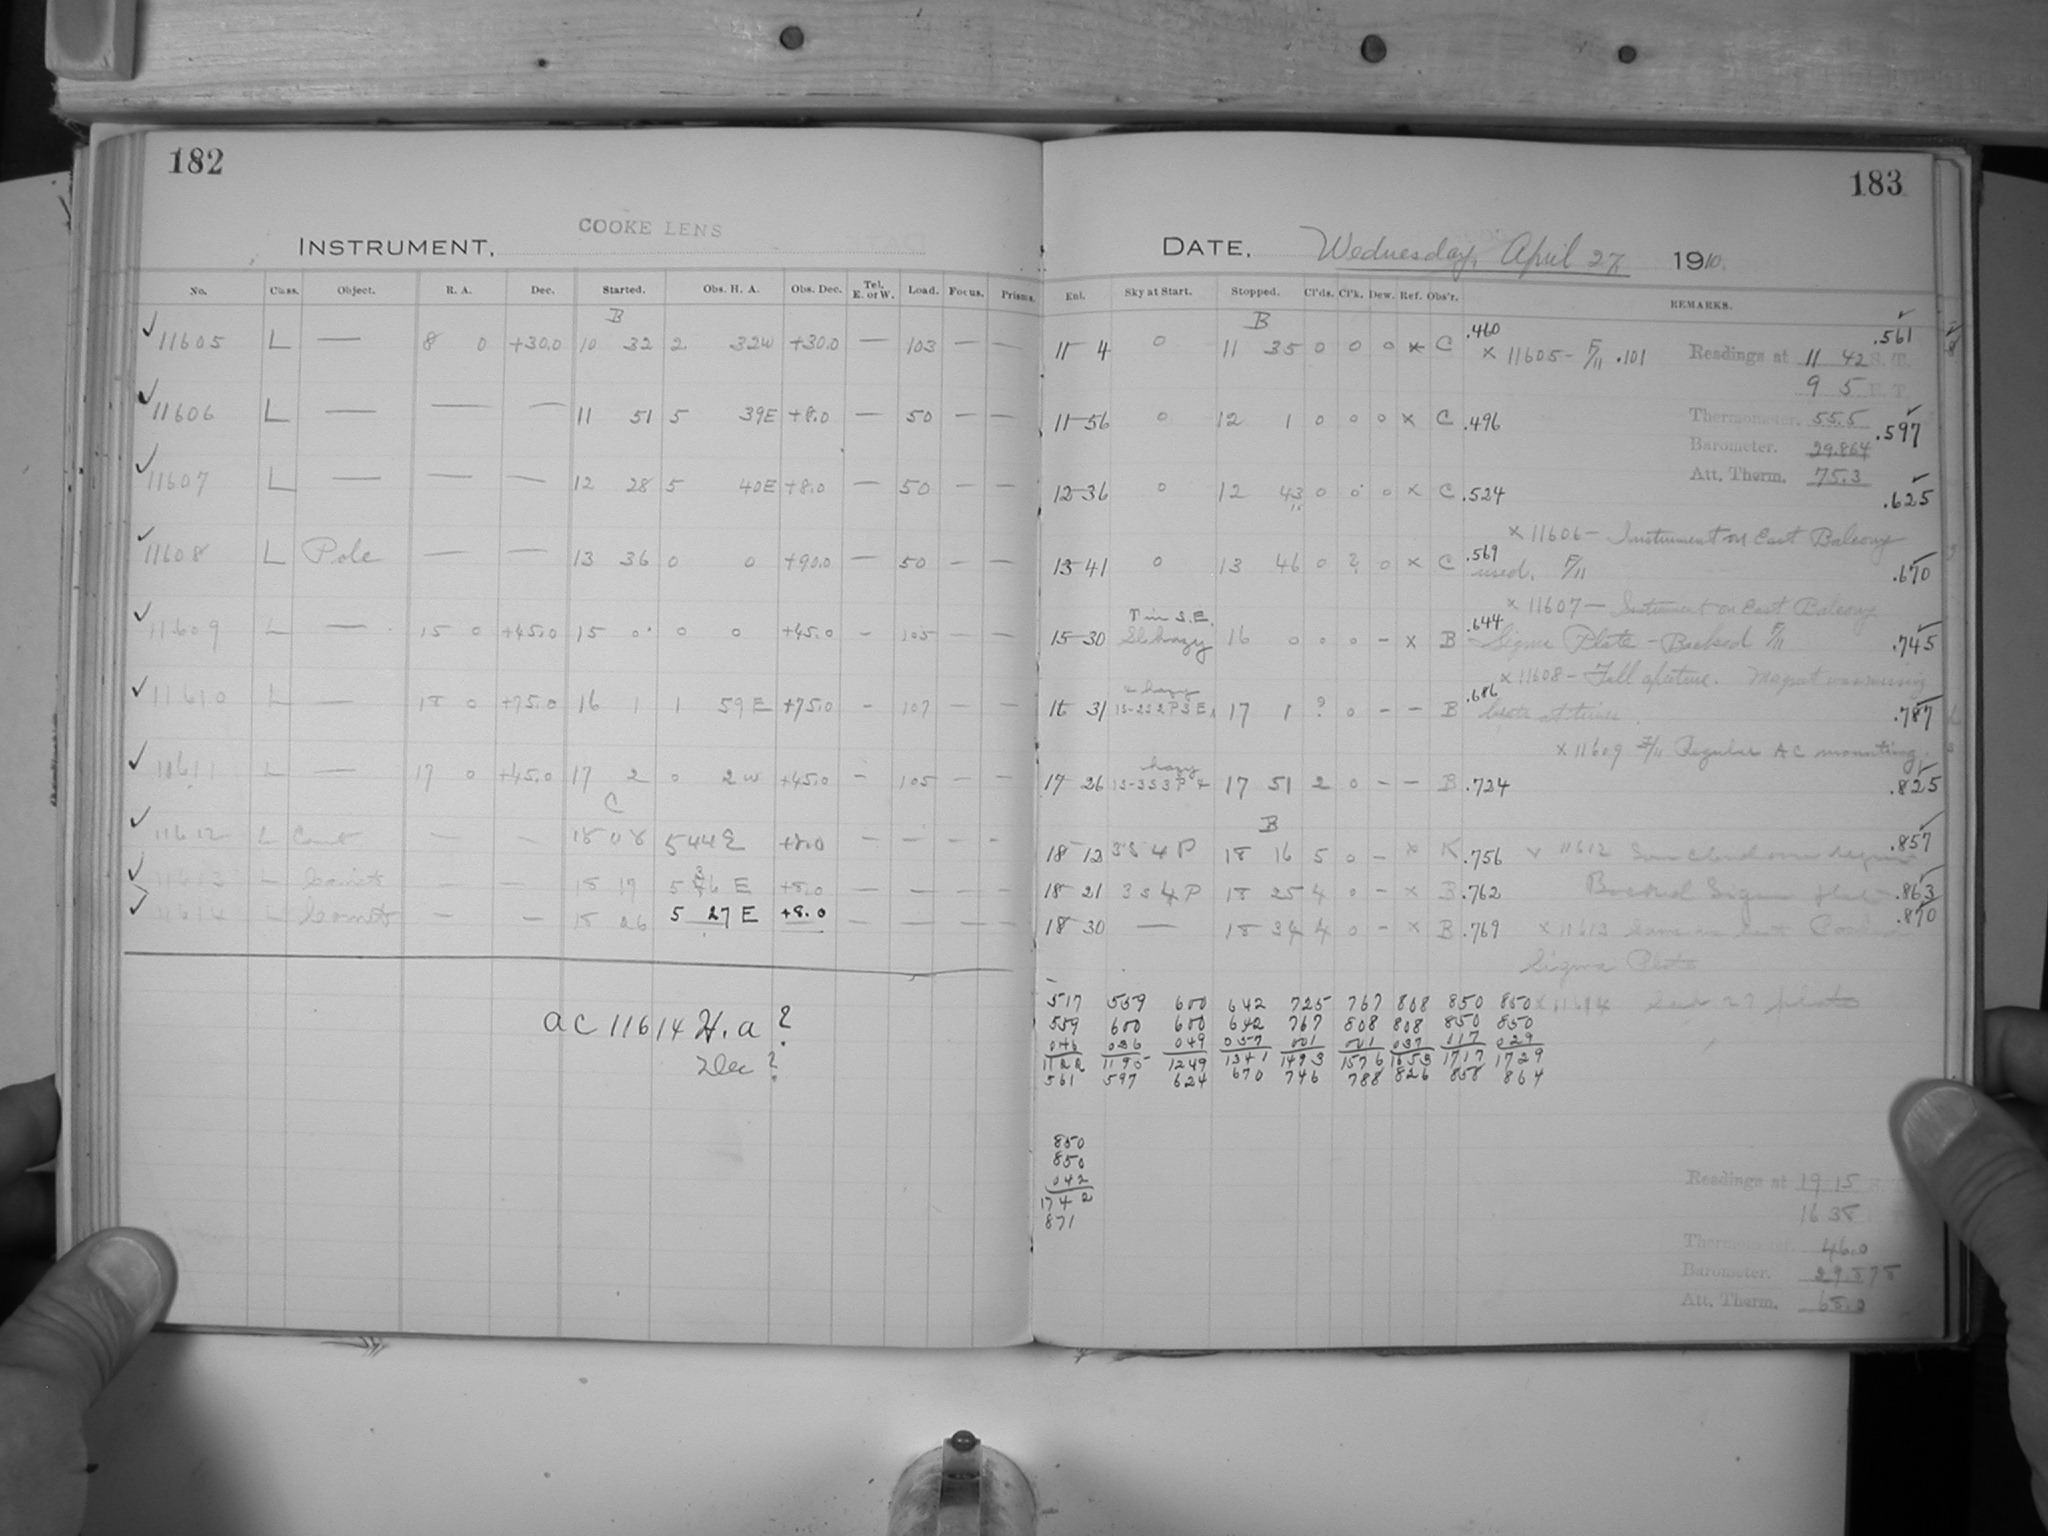 182
COOKE LENS
INSTRUMENT,
No. Class. Object. R. A. Dec. Started. Obs. H. A. Obs. Dec. Tel. E. or W. Load. Focus. Prisms.
B
✓ 11605 L — 8 0 +30.0 10 32 2 32W +30.0 — 103 — —
✓ 11606 L — — — 11 51 5 39E +8.0 — 50 — —
✓ 11607 L — — — 12 28 5 40E +8.0 — 50 — —
✓ 11608 L Pole — — 13 36 0 0 +90.0 — 50 — —
✓ 11609 L — 15 0 +45.0 15 0 0 0 +45.0 — 105 — —
✓ 11610 L — 18 0 +75.0 16 1 1 59 E +75.0 — 107 — —
✓ 11611 L — 17 0 +45.0 17 2 0 2W +45.0 — 105 — —
C
✓ 11612 L Comet — — 18 08 5 44 E +8.0 — — — —
✓ 11613 L Comet — — 18 17 5 36 E +8.0 — — — —
✓ 11614 L Comet — — 18 26 5 27 E +8.0 — — — —
AC 11614 H.A ?
Dec ?
183
DATE, Wednesday, April 27, 1910.
Ent. Sky at Start. Stopped. Cl'ds. Cl'k. Dew. Ref. Obs'r. REMARKS.
B
11 4 0 11 35 0 0 0 x C .460 .561
x 11605 - F/11 .101 Readings at 11 42 S. T.
9 5 E. T.
11 56 0 12 1 0 0 0 x C .496 Thermometer. 55.5 .597
Barometer. 29.864
Att. Therm. 75.3
12 36 0 12 43 0 0 0 x C .524 .625
x 11606 - Instrument on East Balcony
13 41 0 13 46 0 ? 0 x C .569 used. F/11 .670
x 11607 - Instrument on East Balcony
T in S.E.
15 30 Sl. hazy 16 0 0 0 - x B .644 Sigma Plate - Backed F/11 .745
x 11608 - Full aperture. Magnet was missing
hazy
16 31 17 1 ? 0 - - B .686 beats at times. .787
x 11609 F/11 Regular AC mounting.
hazy
17 26 17 51 2 0 - - B .724 .825
B
18 12 3 S 4 P 18 16 5 0 - x K .756 x 11612 .857
18 21 3 S 4 P 18 25 4 0 - x B .762 Backed Sigma plate .863
18 30 — 18 34 4 0 - x B .769 x 11613 Same as last .870
Sigma Plate
x 11614 plate
517 559 600 642 725 767 808 850 850
559 600 600 642 767 808 808 850 850
046 036 049 057 001 001 037 017 029
1122 1195 1249 1341 1493 1576 1653 1717 1729
561 597 624 670 746 788 826 858 864
850
850
042
1742
871
Readings at 19 15 S. T.
16 38
Thermometer. 46.0
Barometer. 29.878
Att. Therm. 68.0